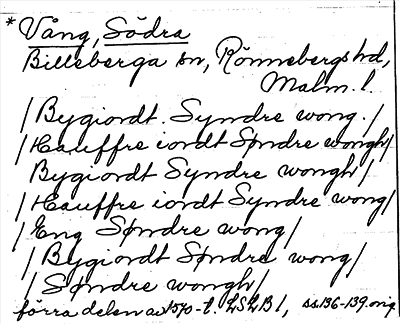 * Vång, Södra
Billeberga sn, Rönnebergs hd,
Malm. l.
/Bygiordt. Syndre wong./
/Hauffre iordt Søndre wongh/
Bygiordt Syndre wongh/
/Hauffre iordt Syndre wong/
/Eng Søndre wong/
/Bygiordt Søndre wong/
/Søndre wongh/
förra delen av 1570-t. LSLB 1, ss. 136-139. orig.